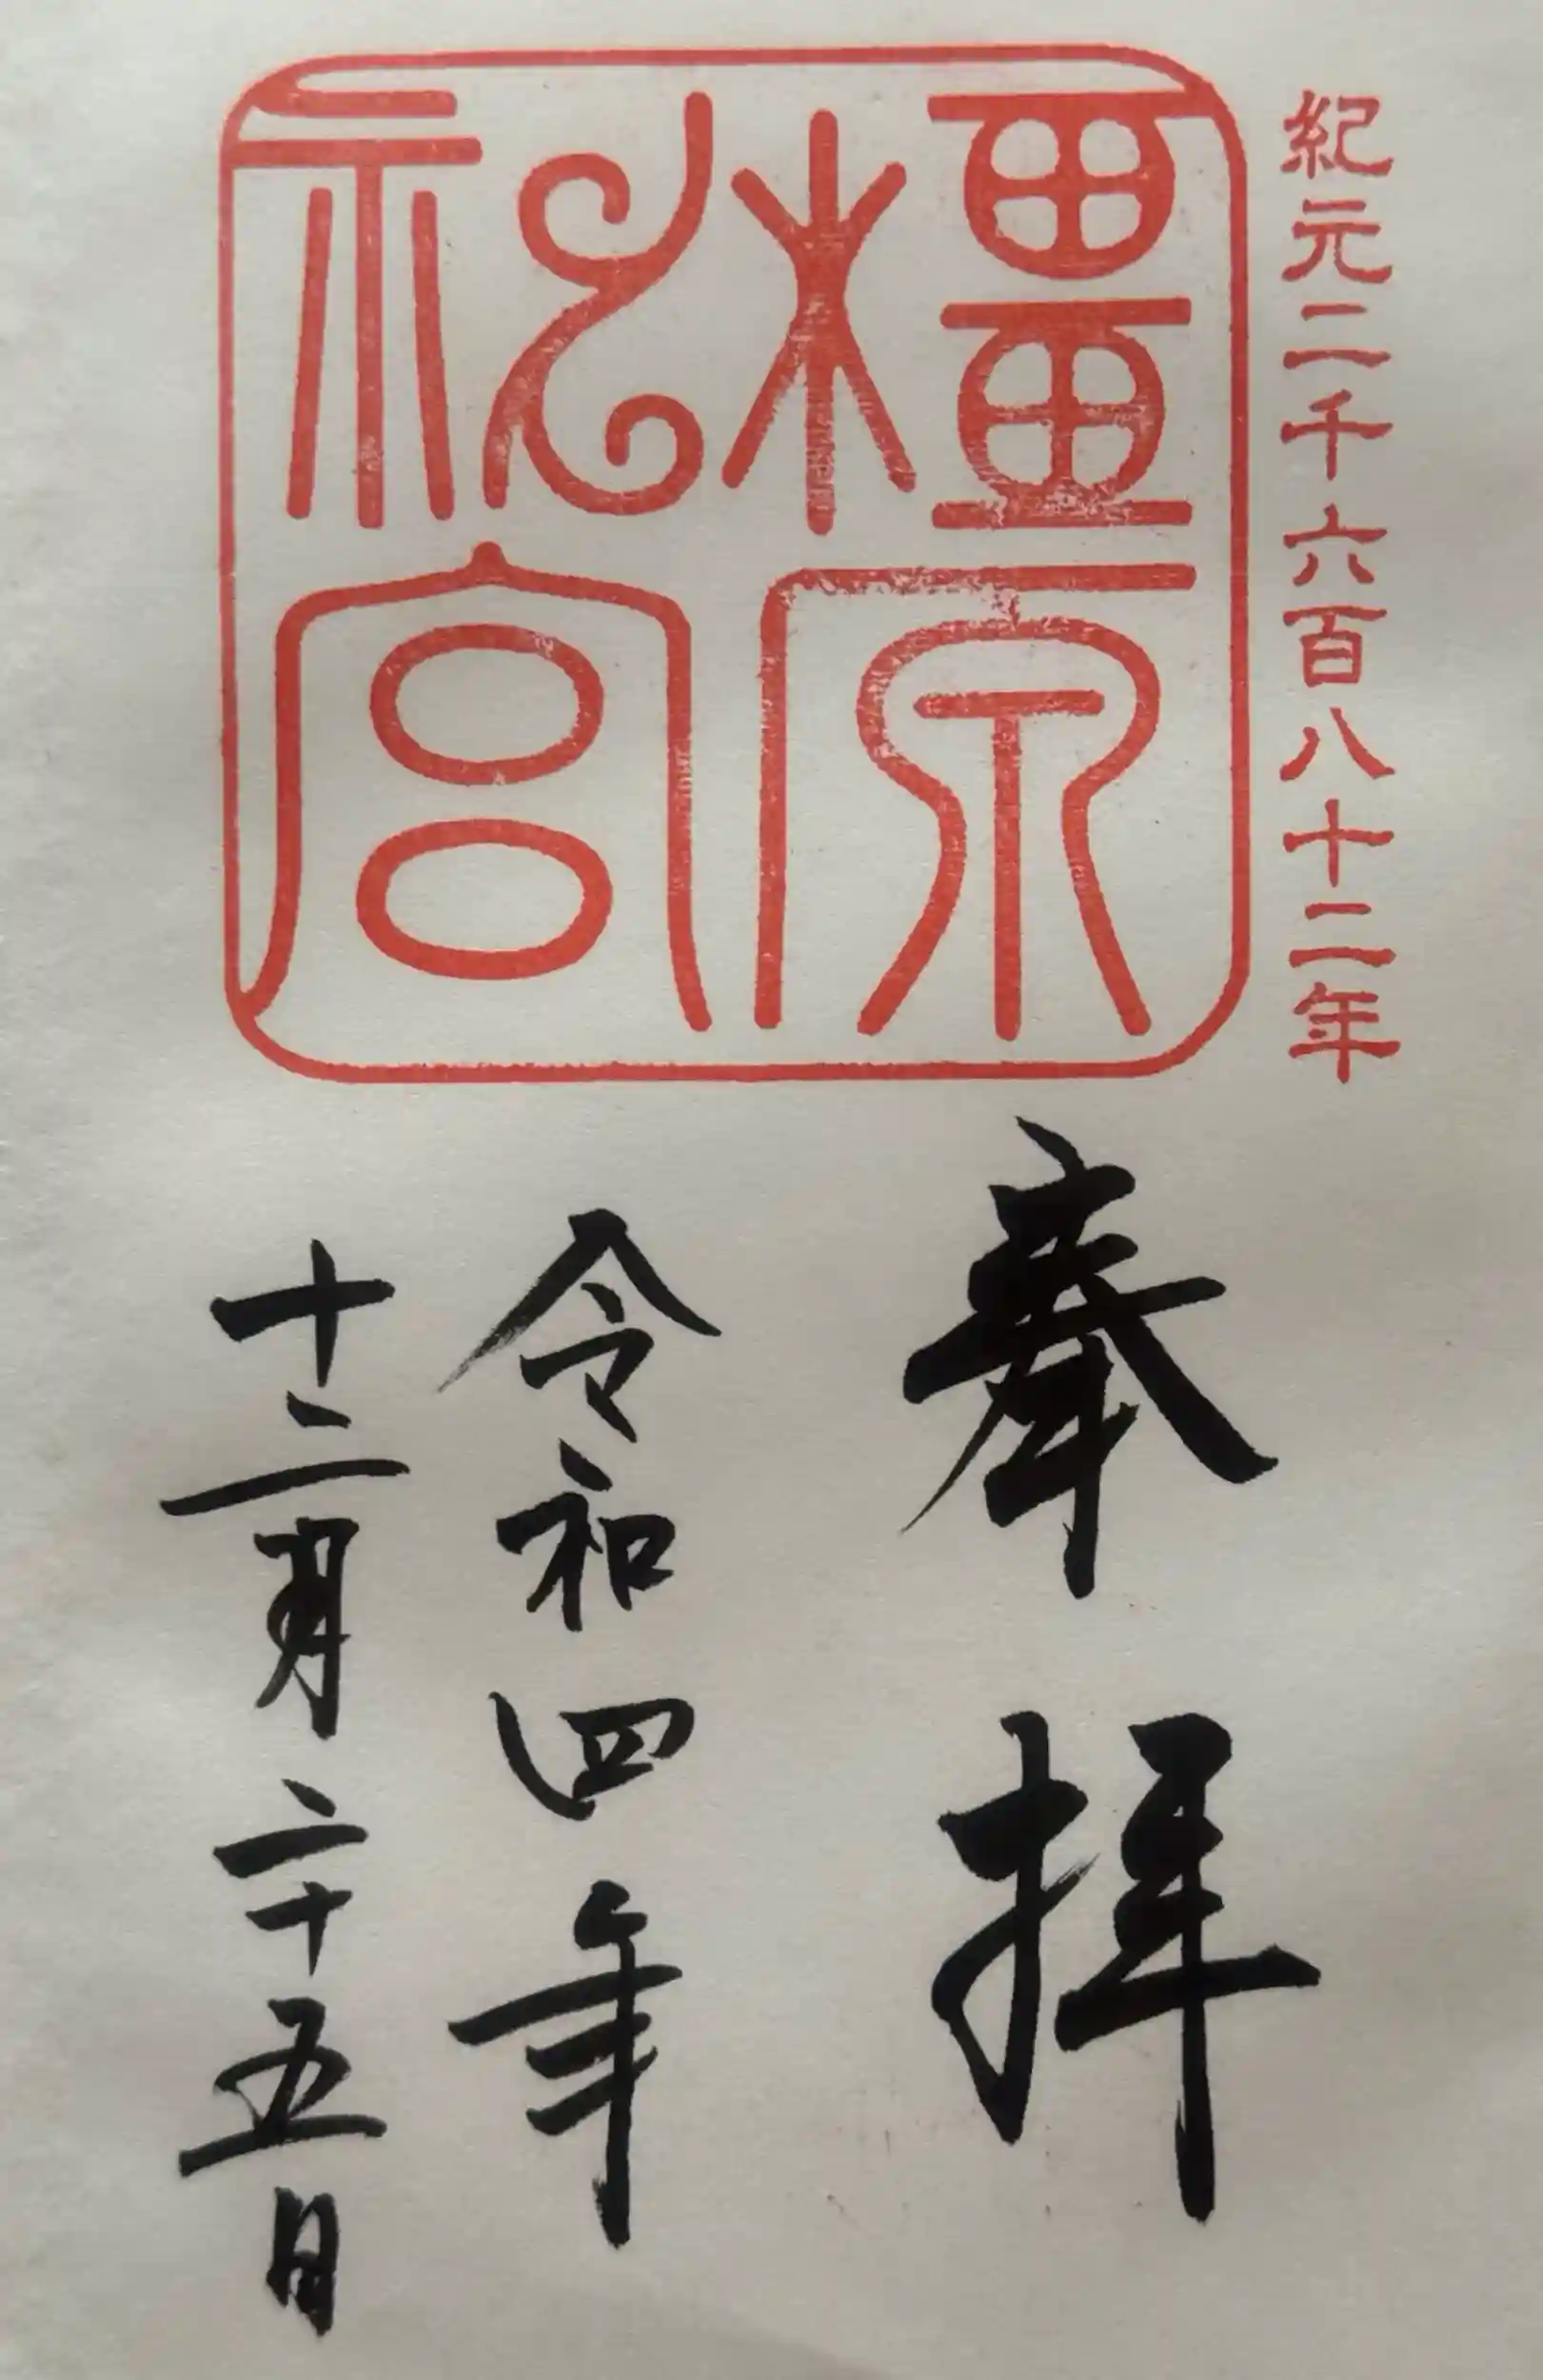 紀元二千六百八十二年
橿原
神宮
奉拝
令和四年
十二月二十五日